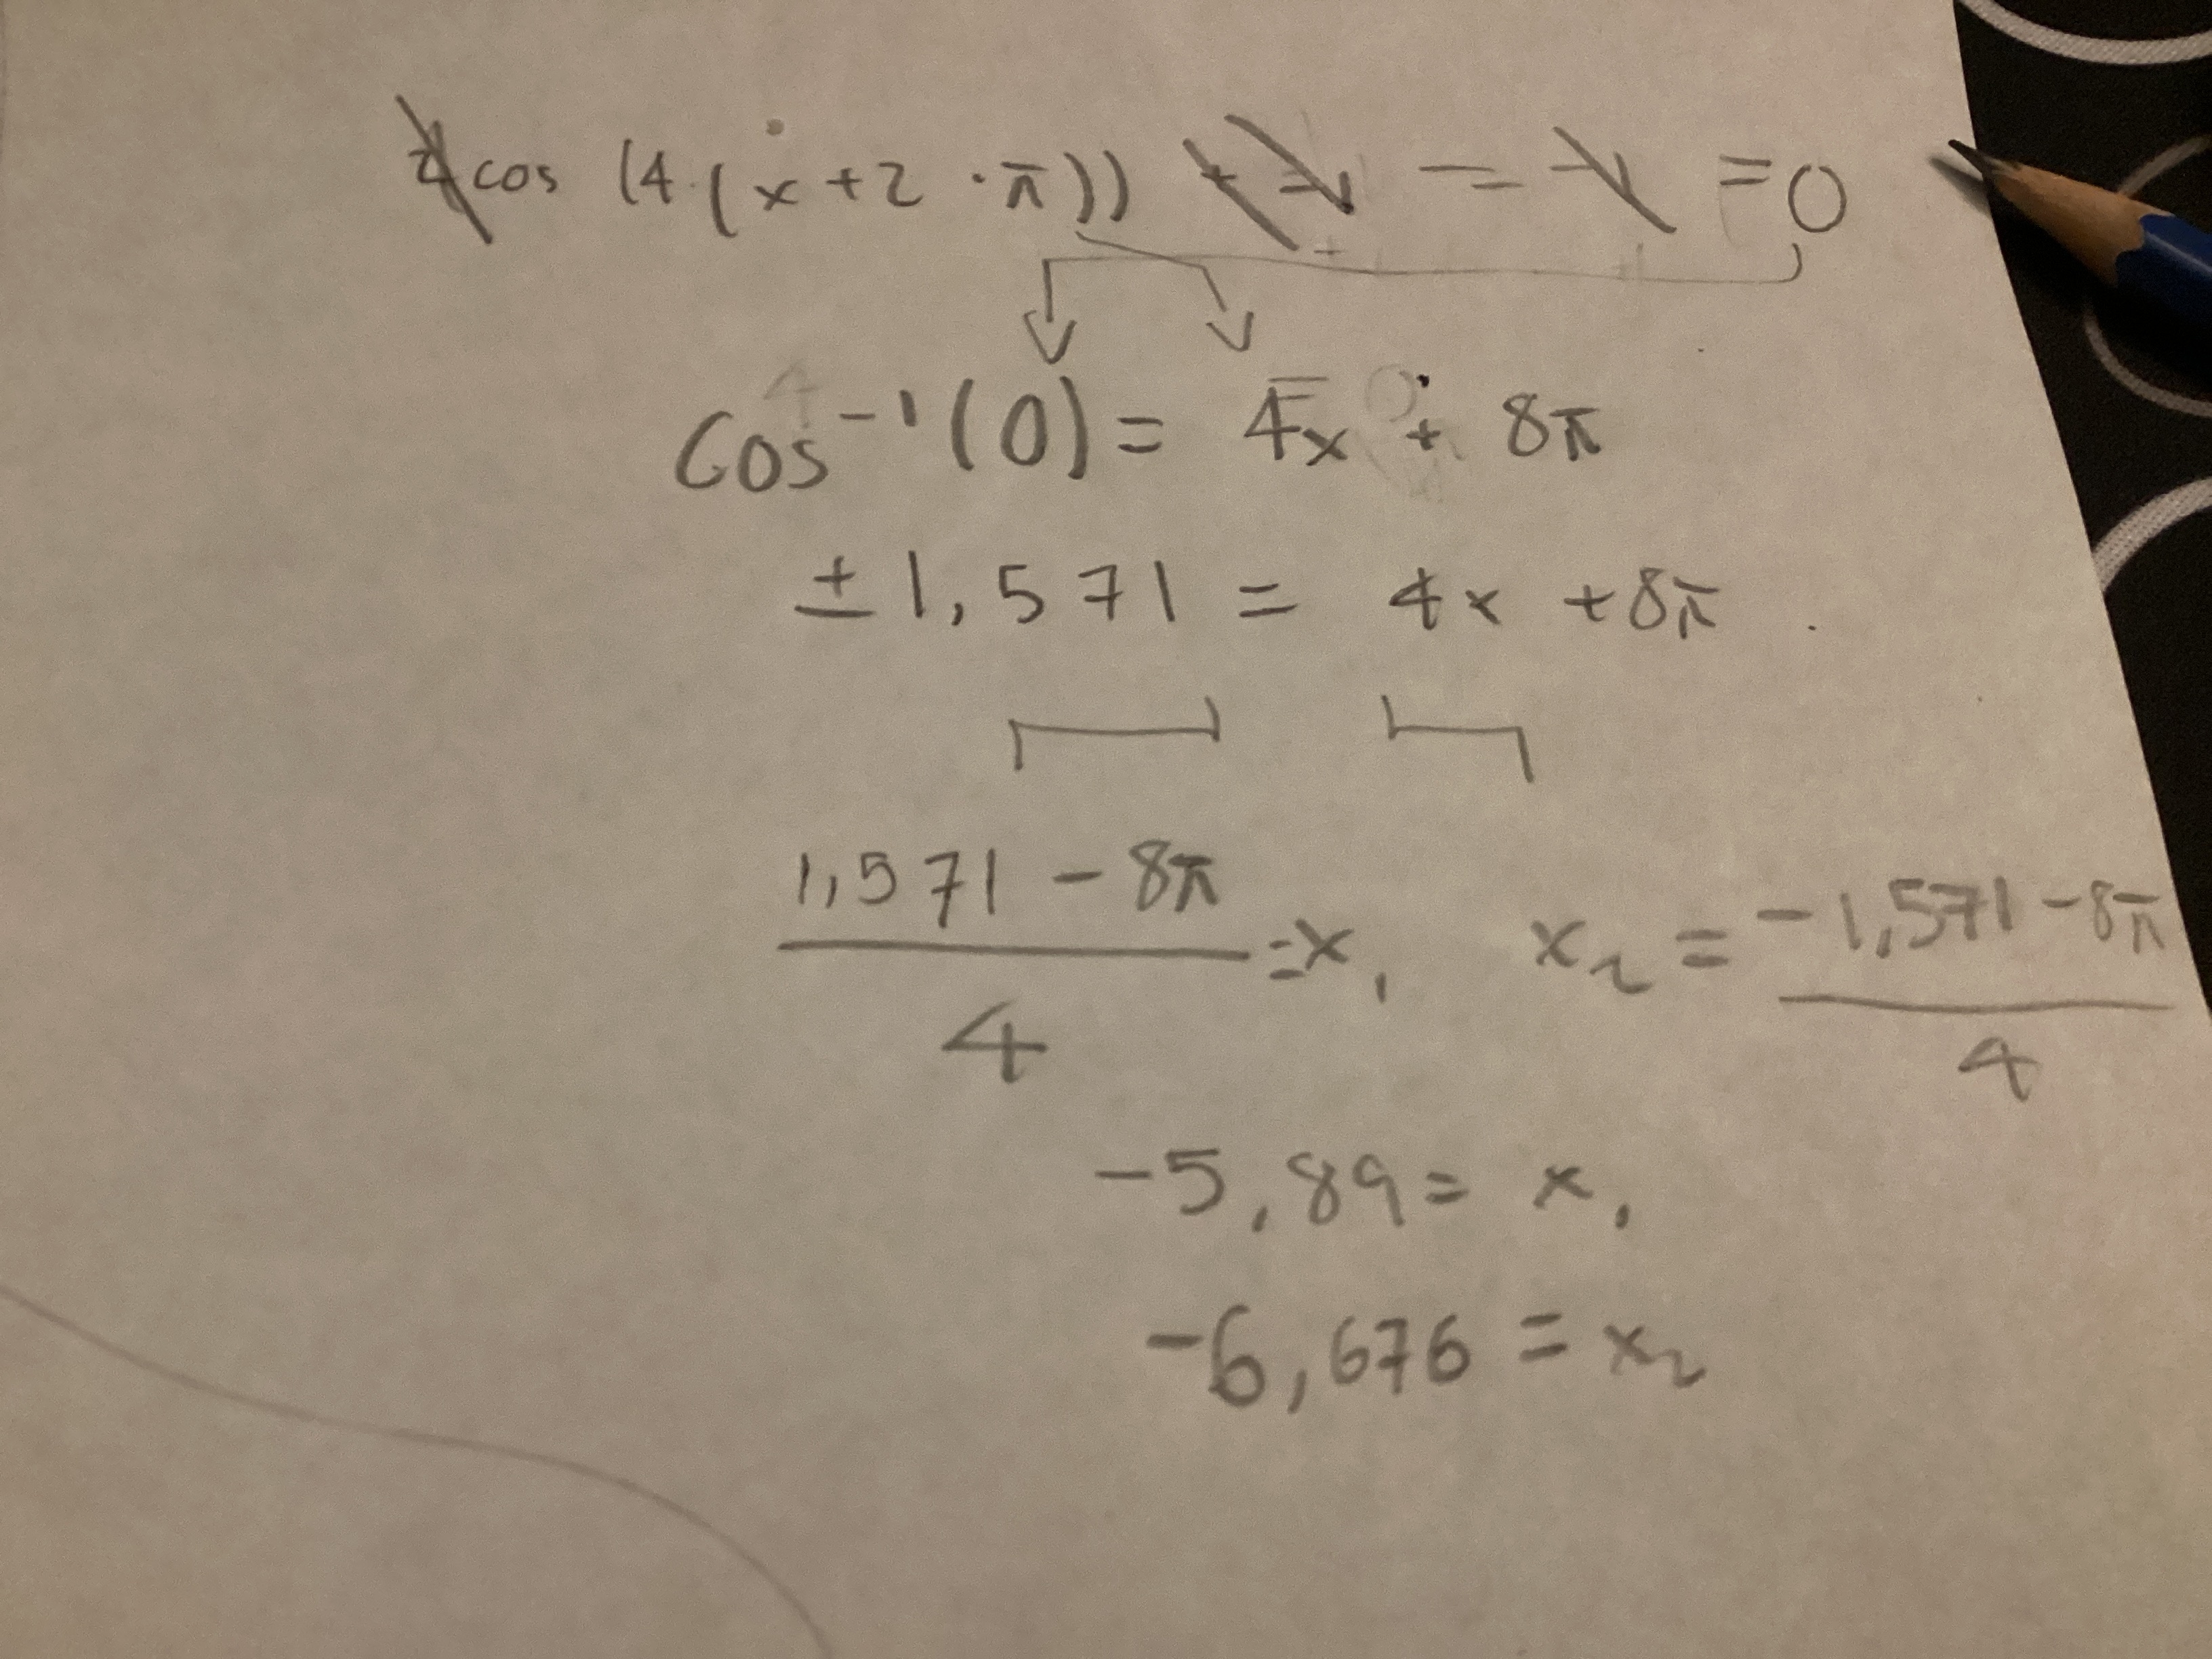 cos (4·(x+2·π)) = =0
Cos⁻¹(0) = 4x + 8π
±1,571 = 4x +8π
(1,571 - 8π)/4 = x₁ x₂ = (-1,571 - 8π)/4
-5,89 = x₁
-6,676 = x₂